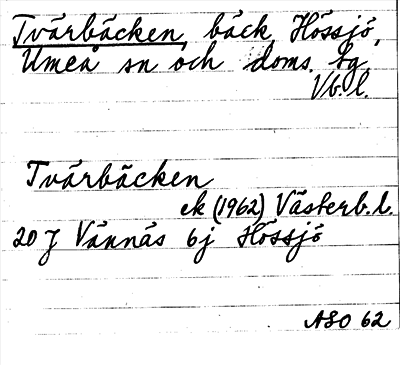 Tvärbäcken, bäck, Hössjö,
Umeå sn och doms. sg
Vb. l.
Tvärbäcken
ek (1962) Västerb. l.
20 J Vännäs 6j Hössjö
ASO 62